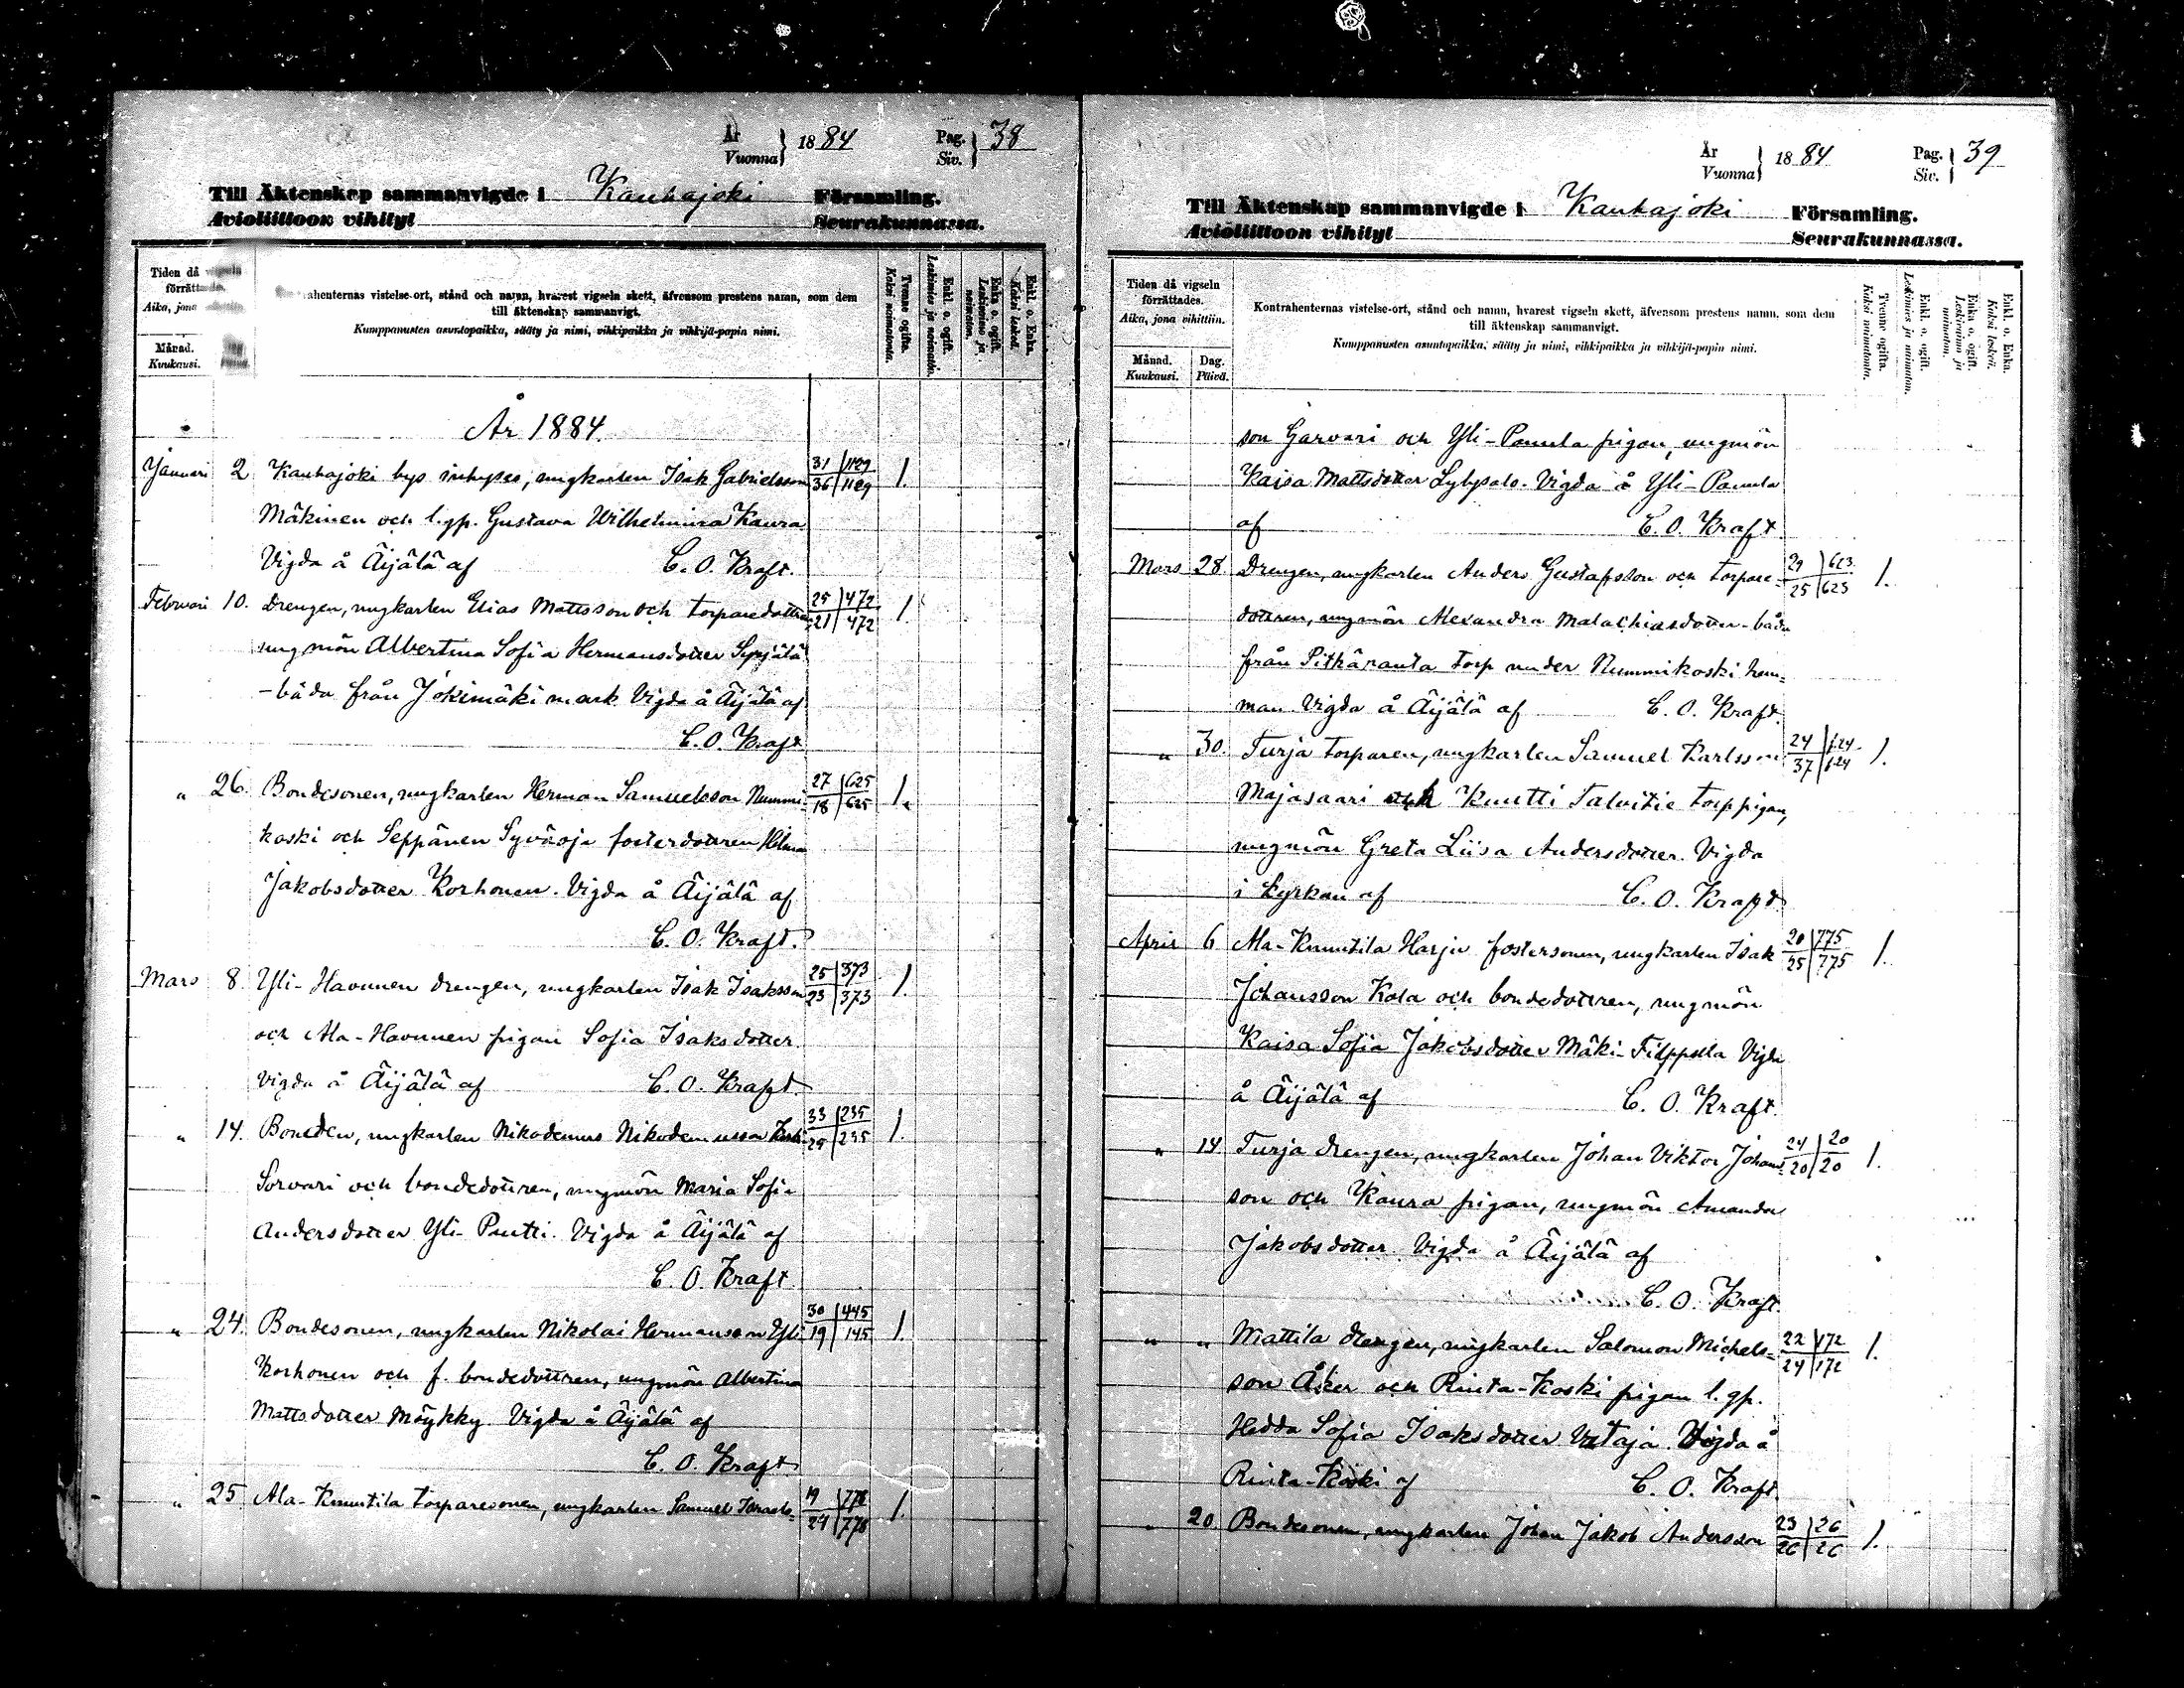 År 1884 Pag. 38
Vuonna Siv.
Till Äktenskap sammanvigde i Kauhajoki Församling.
Avioliittoon vihityt Seurakunnassa.
Tiden då vigseln
förrättades.
Aika, jona
Månad.
Kuukausi.
ahenternas vistelse-ort, stånd och namn, hvarest vigseln skett, äfvensom prestens namn, som dem
till äktenskap sammanvigt.
Kumppanusten asuntopaikka, sääty ja nimi, vihkipaikka ja vihkijä-papin nimi.
Tvenne ogifta.
Kaksi naimatonta.
Enkl. o. ogift.
Leskimies ja naimaton.
Enka o. ogift.
Leskivaimo ja naimaton.
Enkl. o. Enka.
Kaksi leskeä.
År 1884.
Januari 2 Kauhajoki bys inhyses, ungkarlen Isak Gabrielsson 31 1129 1.
36 1129
Mäkinen och l. qp. Gustava Wilhelmina Kaura
Vigda å Äijälä af C. O. Kraft.
Februari 10. Drengen, ungkarlen Elias Mattsson och torparedottren 25 472 1.
21 472
ungmön Albertina Sofia Hermansdotter Syrjälä
- båda från Jokimäki mark. Vigda å Äijälä af
C. O. Kraft
" 26. Bondesonen, ungkarlen Herman Samuelsson Nummi- 27 625 1.
18 625
koski och Seppänen Syväoja fosterdottren Hilma
Jakobsdotter Korhonen. Vigda å Äijälä af
C. O. Kraft.
Mars 8. Yli-Havunen drengen, ungkarlen Isak Isaksson 25 373 1.
23 373
och Ala-Havunen pigan Sofia Isaksdotter.
Vigda å Äijälä af C. O. Kraft.
" 14. Bonden, ungkarlen Nikodemus Nikodemusson 33 235 1.
25 235
Sorvari och bondedottren, ungmön Maria Sofia
Andersdotter Yli-Pantti. Vigda å Äijälä af
C. O. Kraft
" 24. Bondesonen, ungkarlen Nikolai Hermansson Yli- 30 445 1.
19 145
Korhonen och f. bondedottren, ungmön Albertina
Mattsdotter Möykky. Vigda å Äijälä af
C. O. Kraft
" 25 Ala-Knuutila torparesonen, ungkarlen Samuel Israels- 19 776 1.
24 776
År 1884 Pag. 39
Vuonna Siv.
Till Äktenskap sammanvigde i Kauhajoki Församling.
Avioliittoon vihityt Seurakunnassa.
Tiden då vigseln
förrättades.
Aika, jona vihittiin.
Månad. Dag.
Kuukausi. Päivä.
Kontrahenternas vistelse-ort, stånd och namn, hvarest vigseln skett, äfvensom prestens namn, som dem
till äktenskap sammanvigt.
Kumppanusten asuntopaikka, sääty ja nimi, vihkipaikka ja vihkijä-papin nimi.
Tvenne ogifta.
Kaksi naimatonta.
Enkl. o. ogift.
Leskimies ja naimaton.
Enka o. ogift.
Leskivaimo ja naimaton.
Enkl. o. Enka.
Kaksi leskeä.
son Garvari och Yli-Panula pigan, ungmön
Kaisa Mattsdotter Lylysalo. Vigda å Yli-Panula
af C. O. Kraft.
Mars 28. Drengen, ungkarlen Anders Gustafsson och torpare- 29 623 1.
25 623
dottren, ungmön Alexandra Malachiasdotter - båda
från Pitkäranta torp under Nummikoski hem-
man Vigda å Äijälä af C. O. Kraft.
" 30. Turja torparen, ungkarlen Samuel Karlsson 24 124 1.
37 124
Majasaari och Knutti Talvitie torp pigan,
ungmön Greta Liisa Andersdotter. Vigda
i kyrkan af C. O. Kraft
April 6 Ala-Knuutila Harju fostersonen, ungkarlen Isak 20 775 1.
25 775
Johansson Kola och bondedottren, ungmön
Kaisa Sofia Jakobsdotter Mäki-Filppula Vigda
å Äijälä af C. O. Kraft.
" 14. Turja drengen, ungkarlen Johan Viktor Johans- 24 20 1.
20 20
son och Kaura pigan, ungmön Amanda
Jakobsdotter. Vigda å Äijälä af
C. O. Kraft.
" " Mattila drengen, ungkarlen Salomon Michels- 22 172 1.
24 172
son Åker och Rinta-Koski pigan l. qp.
Hedda Sofia Isaksdotter Vataja. Vigda å
Rinta-Koski af C. O. Kraft.
" 20. Bondesonen, ungkarlen Johan Jakob Andersson 23 26 1.
26 26